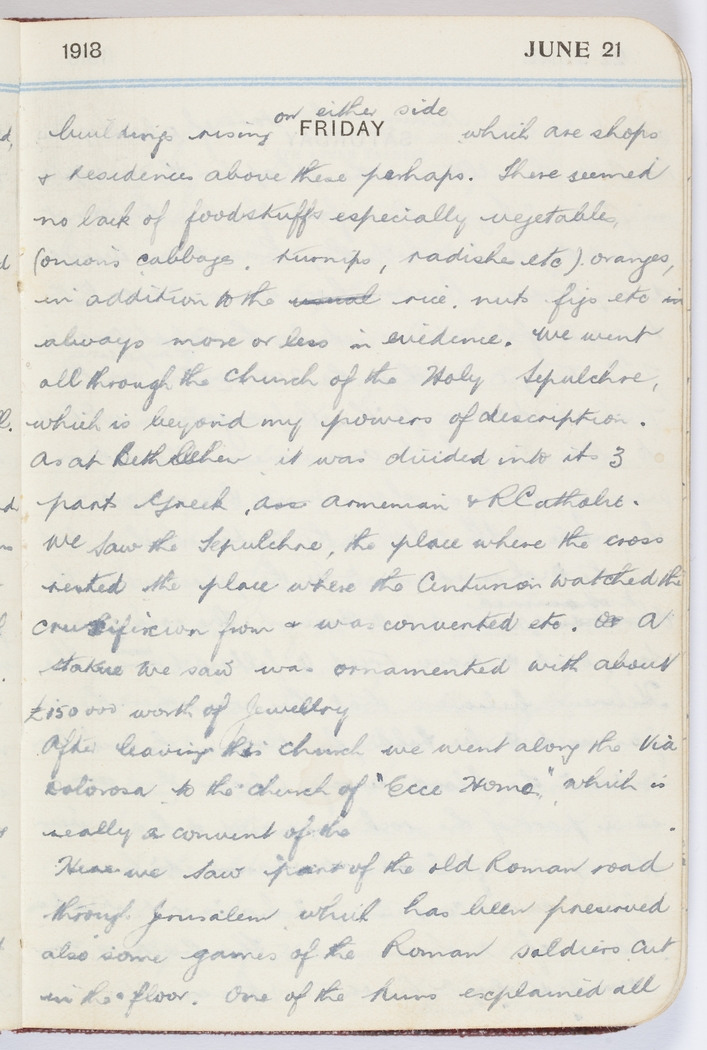 1918 JUNE 21
on either side
FRIDAY
buildings rising which are shops
& residences above these perhaps. There seemed
no lack of foodstuffs especially vegetables,
(onions cabbage, turnips, radishes etc) oranges,
in addition to the usual rice, nuts figs etc in
always more or less in evidence. We went
all through the Church of the Holy Sepulchre,
which is beyond my powers of description.
As at Bethlehem it was divided into its 3
parts Greek, Armenian & R Catholic.
We saw the Sepulchre, the place where the cross
rested the place where the Centurion watched the
crucifixion from & was converted etc. A
statue we saw was ornamented with about
£150000 worth of Jewellry
After leaving this church we went along the Via
Dolorosa to the church of "Ecce Homo", which is
really a convent of the
Here we saw part of the old Roman road
through Jerusalem which has been preserved
also some games of the Roman soldiers cut
in the floor. One of the Nuns explained all